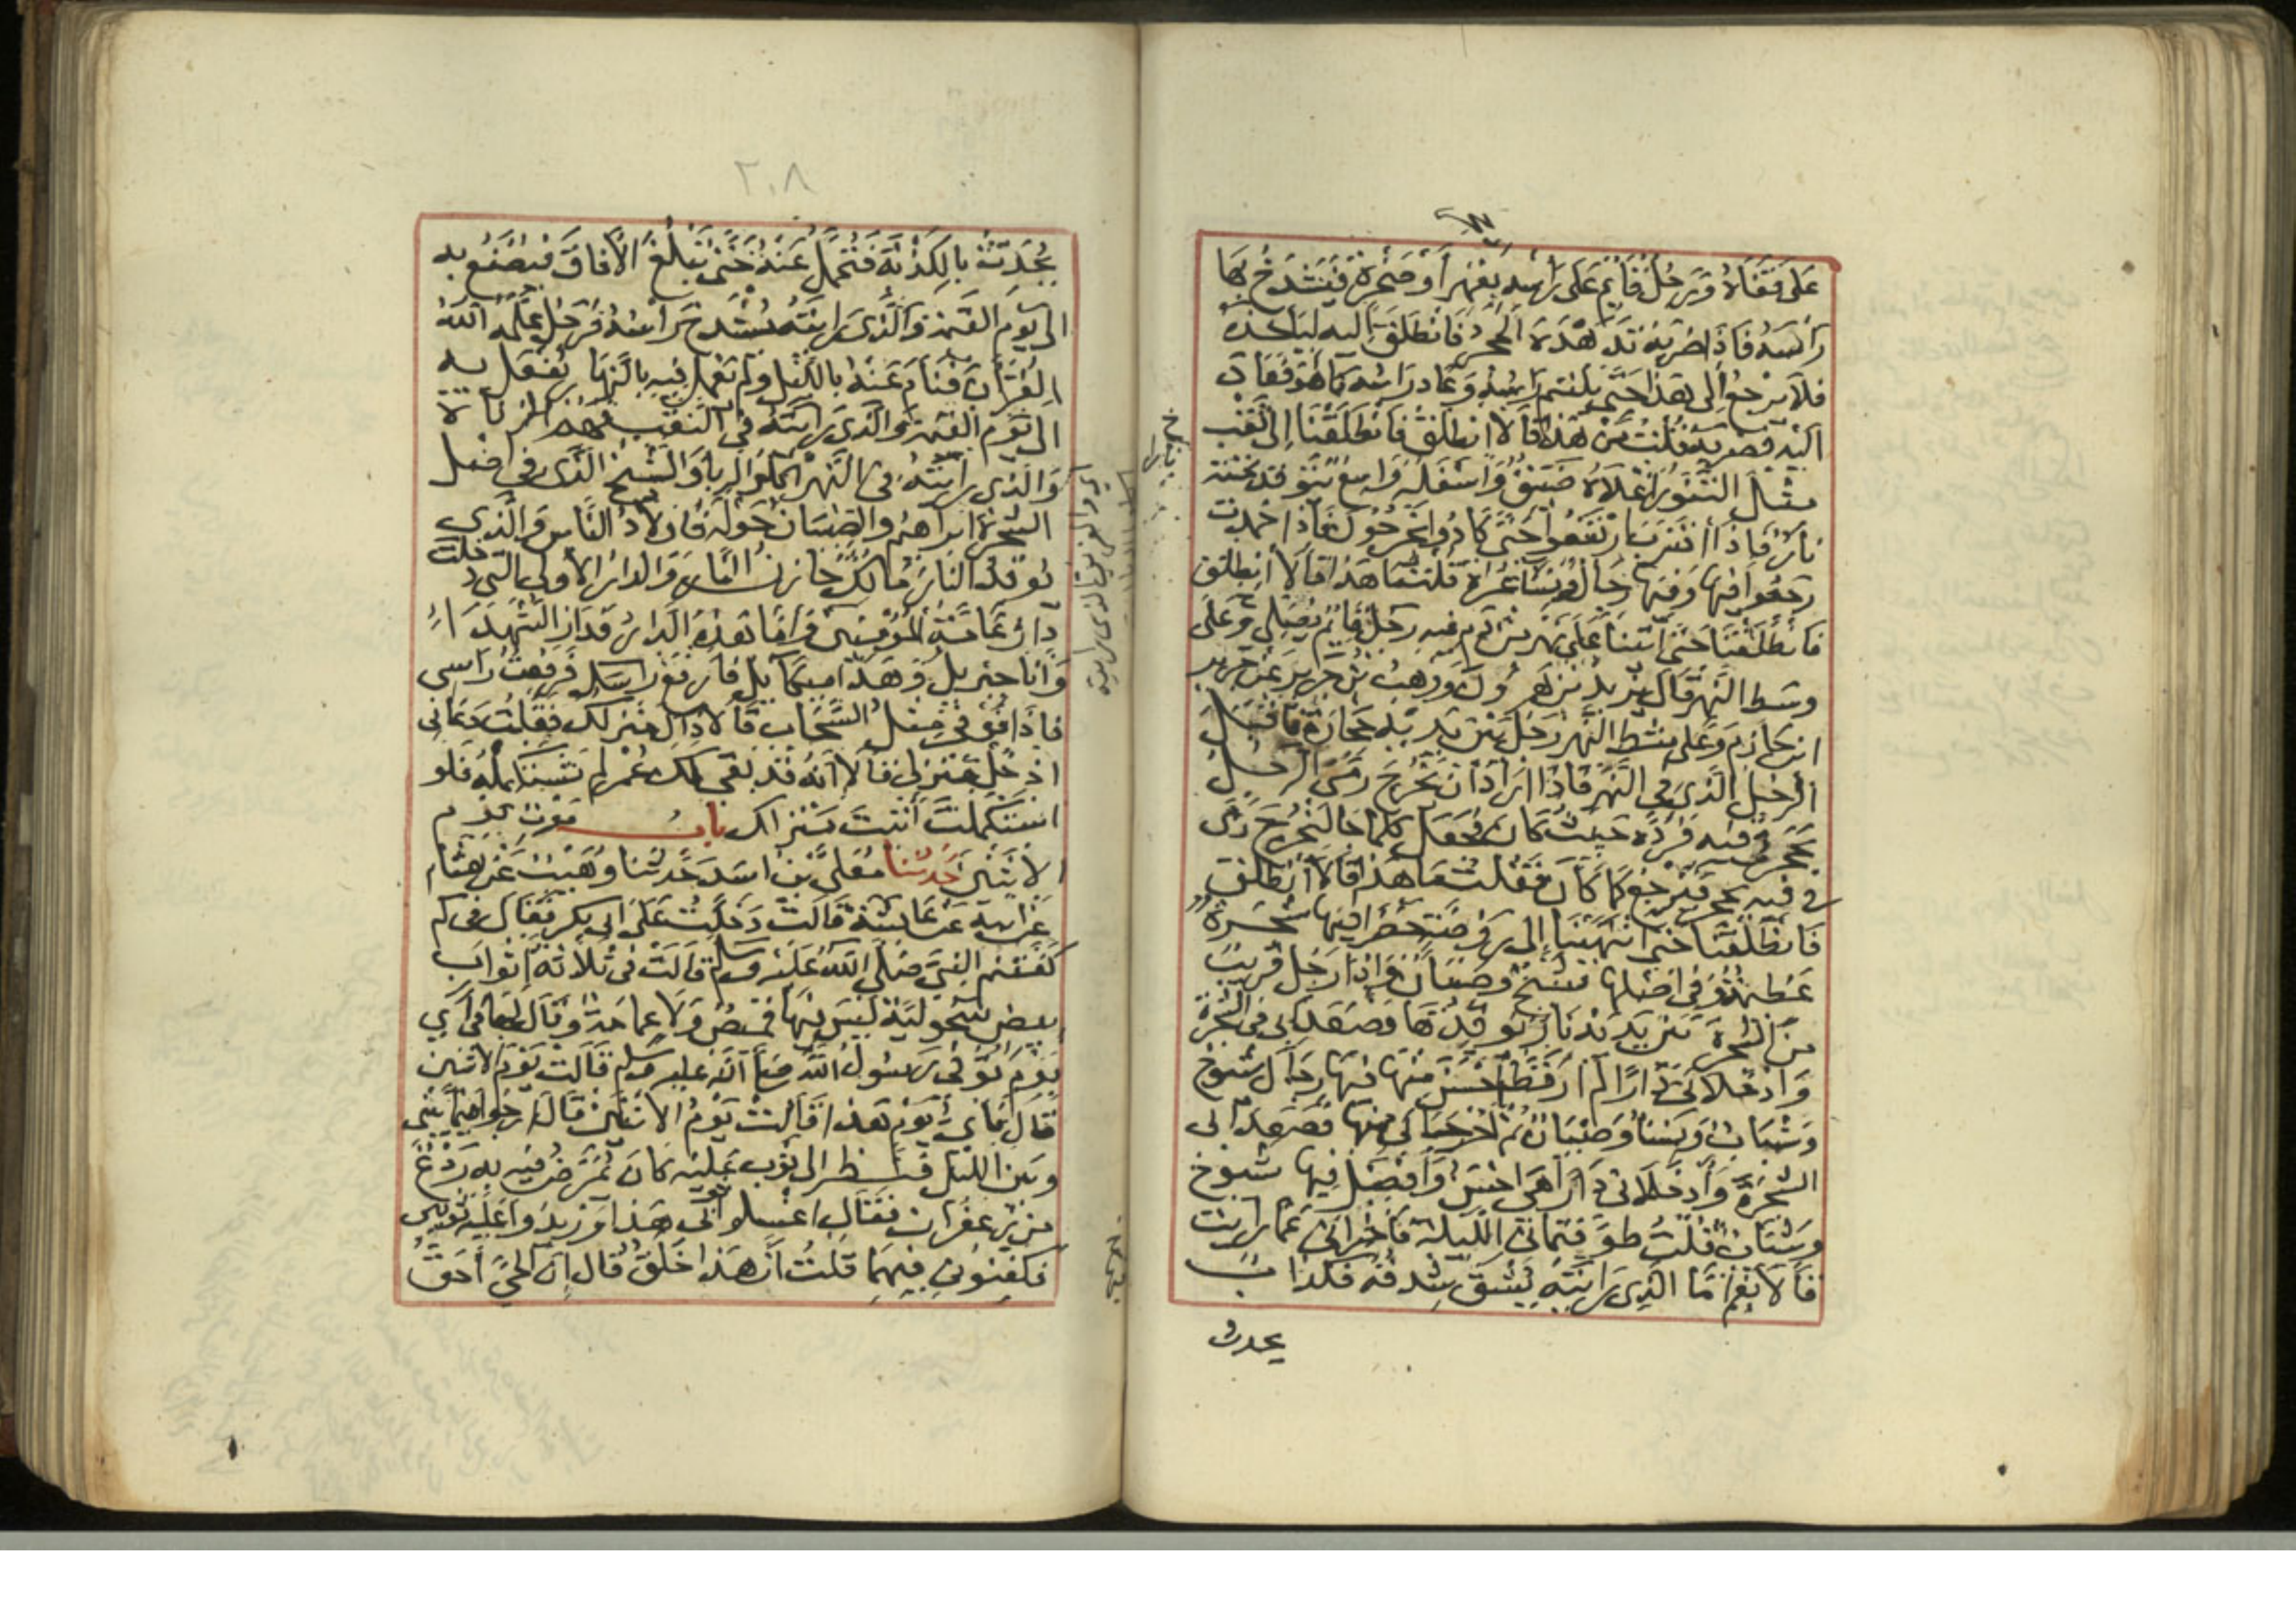 على قفاه ورجل قائم على رأسه بفهر أو صخرة فيشدخ بها
رأسه فإذا ضربه تدهده الحجر فانطلق إليه ليأخذه
فلا يرجع إلى هذا حتى يلتئم رأسه وعاد رأسه كما هو فعاد
إليه فضربه قلت من هذا قالا انطلق فانطلقنا إلى نقب
مثل التنور أعلاه ضيق وأسفله واسع يتوقد تحته
نار فإذا اقترب ارتفعوا حتى كادوا يخرجون فإذا خمدت
رجعوا فيها وفيها رجال ونساء عراة قلت ما هذا قالا انطلق
فانطلقنا حتى أتينا على نهر من دم فيه رجل قائم وعلى
وسط النهر قال يزيد بن هرون ووهب بن جرير عن جرير
ابن حازم وعلى شط النهر رجل بين يديه حجارة فأقبل
الرجل الذي في النهر فإذا أراد أن يخرج رمى الرجل
بحجر في فيه فرده حيث كان فجعل كلما جا ليخرج رمى
في فيه بحجر فيرجع كما كان فقلت ما هذا قالا انطلق
فانطلقنا حتى انتهينا إلى روضة خضرا فيها شجرة
عظيمة وفي أصلها شيخ وصبيان وإذا رجل قريب
من الشجرة بين يديه نار يوقدها فصعدا بي في الشجرة
وأدخلاني دارا لم أر قط أحسن منها فيها رجال شيوخ
وشباب ونسا وصبيان ثم أخرجاني منها فصعدا بي
الشجرة وأدخلاني دارا هي أحسن وأفضل فيها شيوخ
وشباب قلت طوفتماني الليلة فأخبراني عما رأيت
قالا نعم أما الذي رأيته يشق شدقه فكذاب
يحدث
٢٠٨
يحدث بالكذبة فتحمل عنه حتى تبلغ الآفاق فيصنع به
إلى يوم القيمة والذي رأيته يشدخ رأسه فرجل علمه الله
القرآن فنام عنه بالليل ولم يعمل فيه بالنهار يفعل به
إلى يوم القيمة والذي رأيته في النقب فهم الزناة
والذي رأيته في النهر آكلوا الربا والشيخ الذي في أصل
الشجرة إبراهيم والصبيان حوله فأولاد الناس والذي
يوقد النار مالك خازن النار والدار الأولى التي دخلت
دار عامة المؤمنين وأما هذه الدار فدار الشهداء
وأنا جبريل وهذا ميكائيل فارفع رأسك فرفعت رأسي
فإذا فوقي مثل السحاب قالا ذاك منزلك فقلت دعاني
أدخل منزلي قالا إنه قد بقي لك عمر لم تستكمله فلو
استكملت أتيت منزلك باب موت يوم
الاثنين حدثنا معلى بن أسد حدثنا وهيب عن هشام
عن أبيه عن عائشة قالت دخلت على أبي بكر فقال في كم
كفنتم النبي صلى الله عليه وسلم قالت في ثلاثة أثواب
بيض سحولية ليس فيها قميص ولا عمامة وقال لها في أي
يوم توفي رسول الله صلى الله عليه وسلم قالت يوم الاثنين
قال فأي يوم هذا قالت يوم الاثنين قال أرجو فيما بيني
وبين الليل فنظر إلى ثوب عليه كان يمرض فيه به ردع
من زعفران فقال اغسلوا ثوبي هذا وزيدوا عليه ثوبين
فكفنوني فيهما قلت إن هذا خلق قال إن الحي أحق